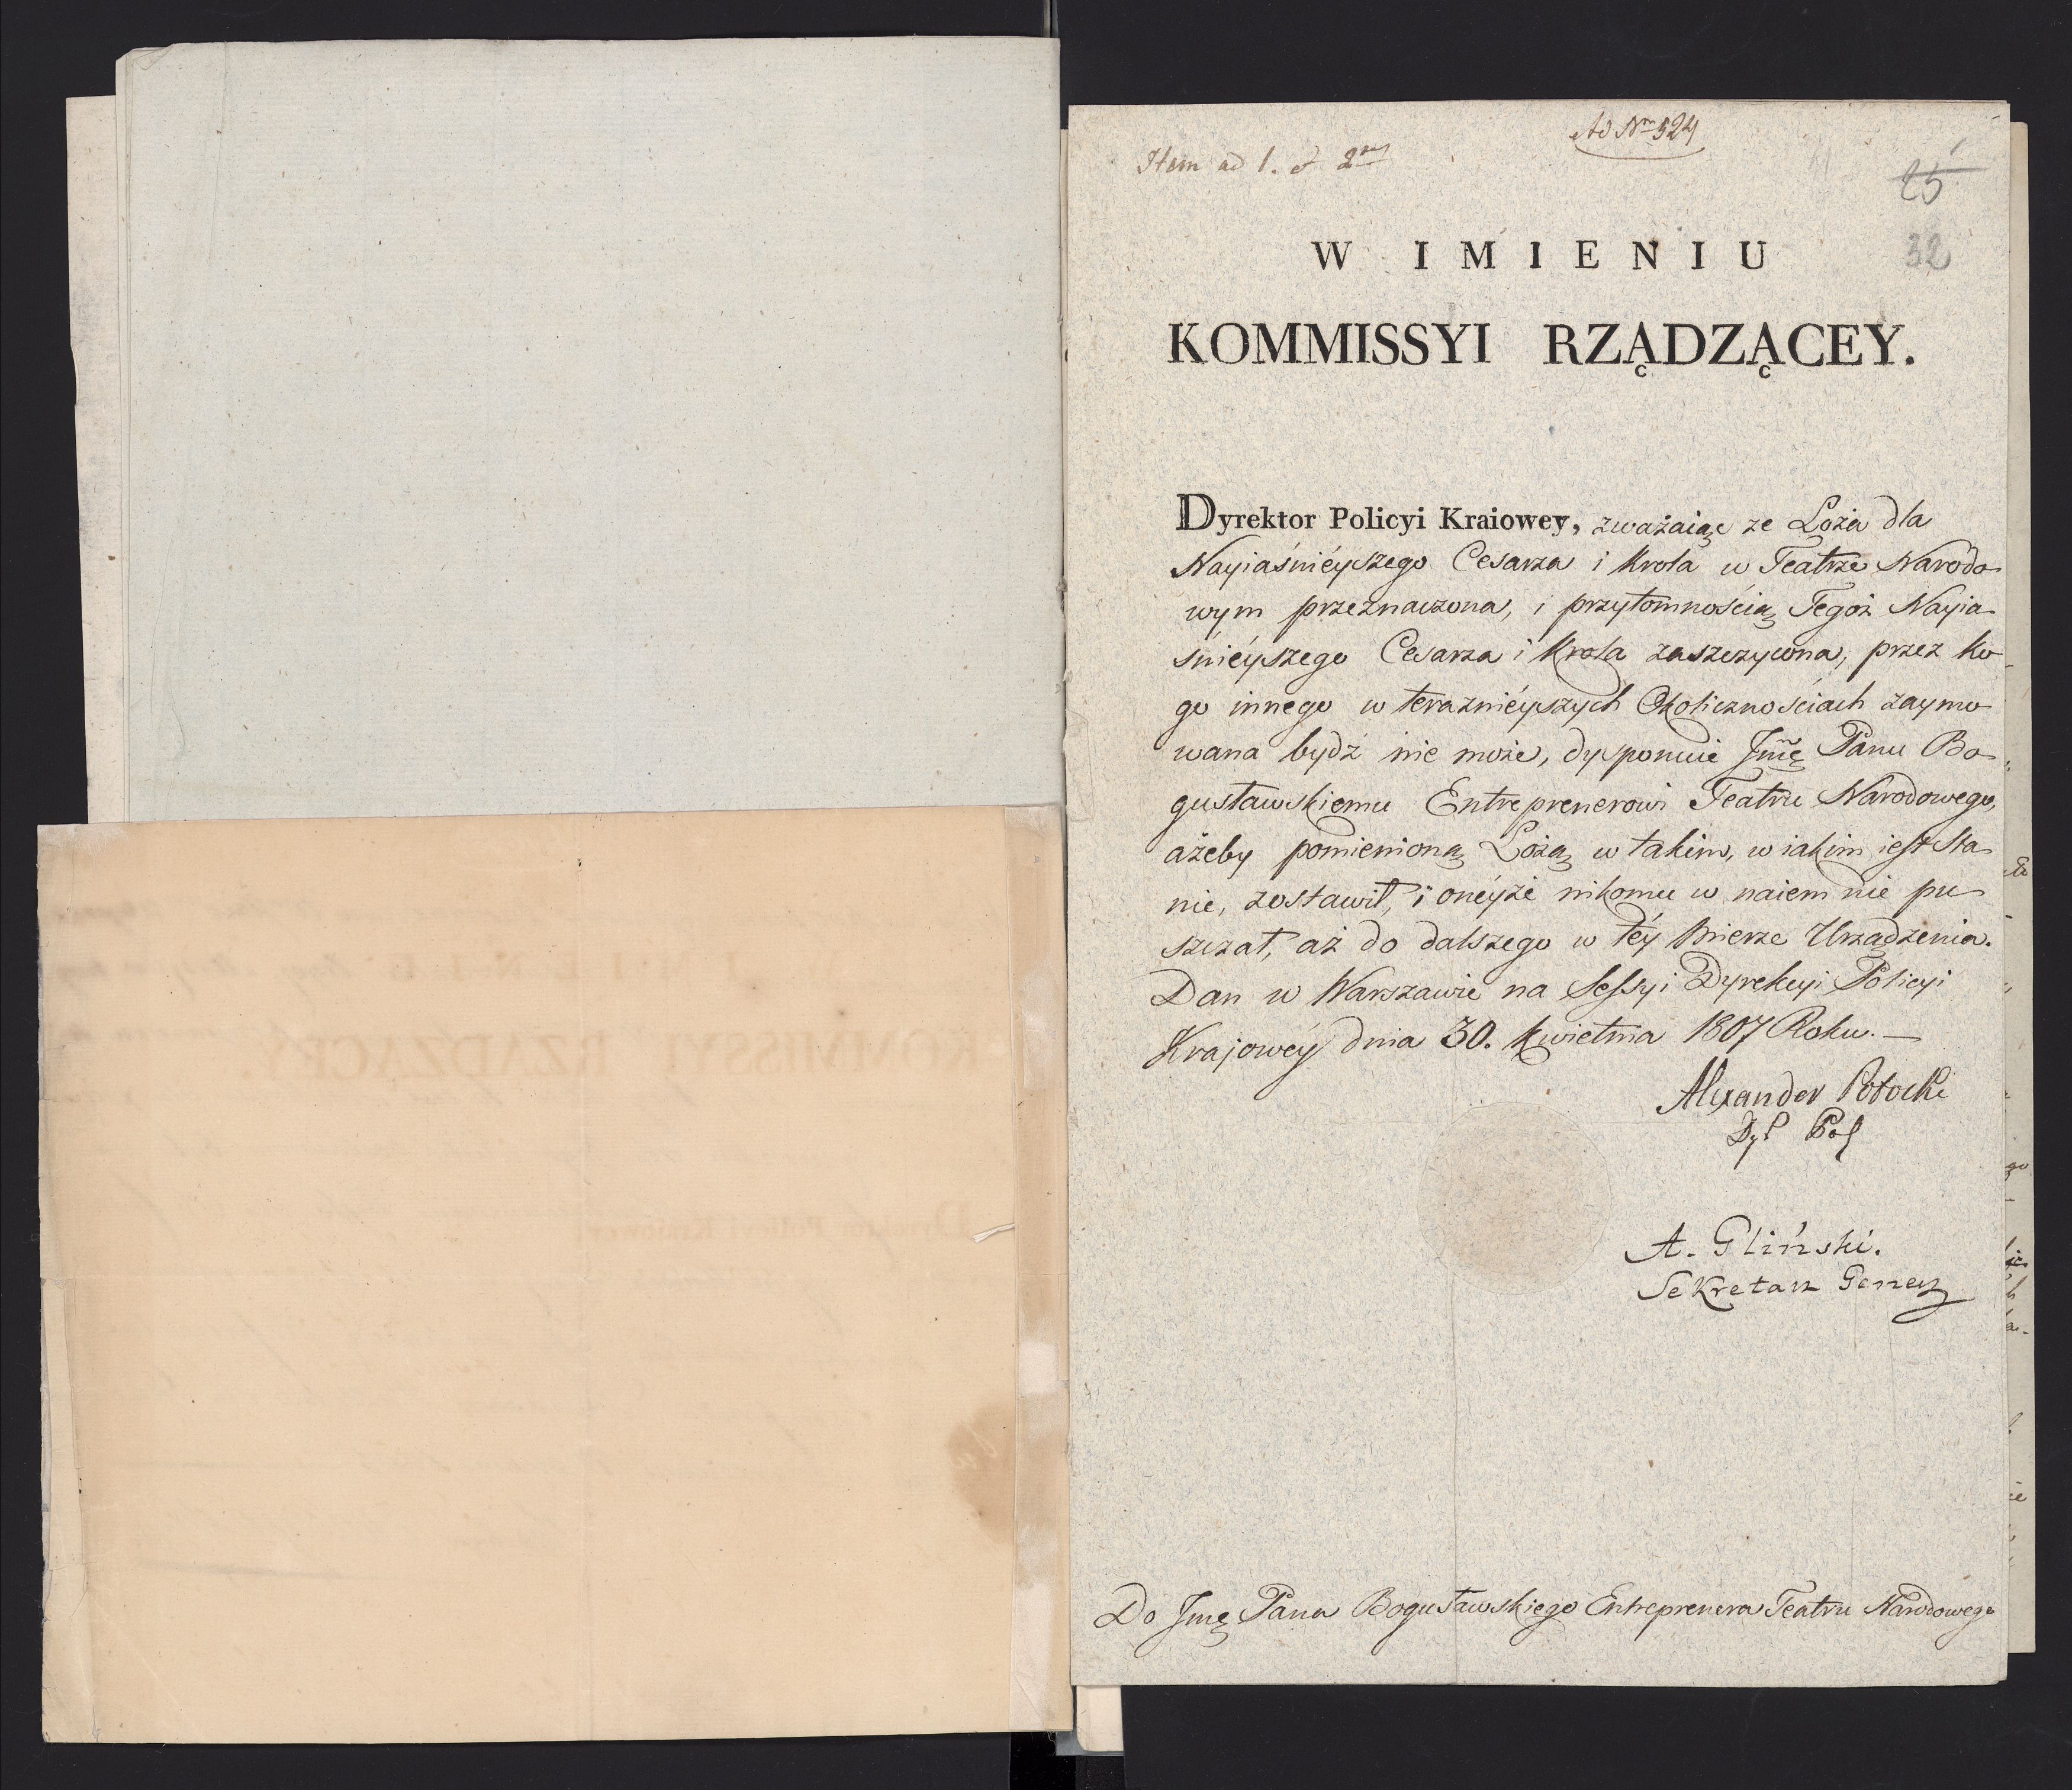 Ad Nm 524
Item ad 1. et 2m
25
32
W IMIENIU
KOMMISSYI RZĄDZĄCEY.
Dyrektor Policyi Kraiowey, zważaiąc ze Loża dla
Nayiaśnieyszego Cesarza i Krola w Teatrze Narodo-
wym przeznaczona, i przytomnością Tegoż Nayia-
śnieyszego Cesarza i Krola zaszczycona, przez ko-
go innego w teraznieyszych Okolicznościach zaymo-
wana bydź nie może, dysponuie Jmć Panu Bo-
gusławskiemu Entreprenerowi Teatru Narodowego,
ażeby pomienioną Lożą w takim, w iakim iest sta-
nie, zostawił, i oneyże nikomu w naiem nie pu-
szczał, aż do dalszego w téy mierze Urządzenia.
Dan w Warszawie na Sessyi Dyrekcyi Policyi
Krajowéy dnia 30. Kwietnia 1807 Roku.—
Alexander Potocki
Dyr Pol
A. Gliński.
Sekretarz Gener
Do Jmć Pana Bogusławskiego Entreprenera Teatru Narodowego